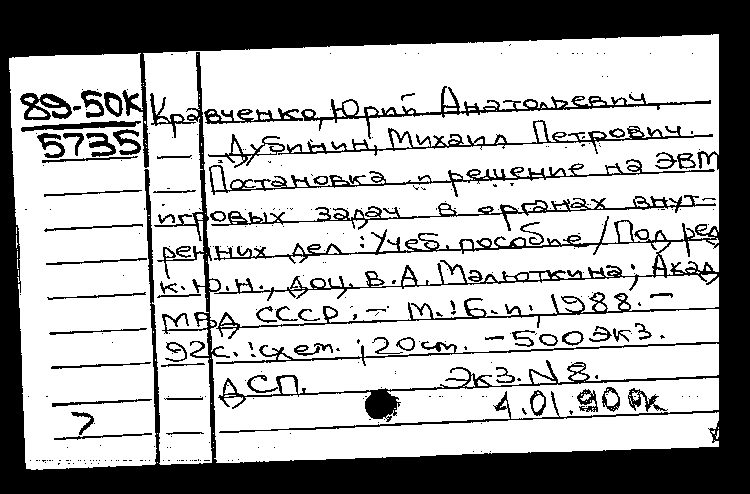 89-50к
5735
Кравченко, Юрий Анатольевич,
Дубинин, Михаил Петрович.
Постановка и решение на ЭВМ
игровых задач в органах внут-
ренних дел : Учеб. пособие / Под ред
к.ю.н., доц. В.А. Малюткина; Акад
МВД СССР. – М.: Б.и., 1988. –
92с. : схем. ; 20см. – 500экз.
ДСП. Экз. N 8.
4.01.90
7